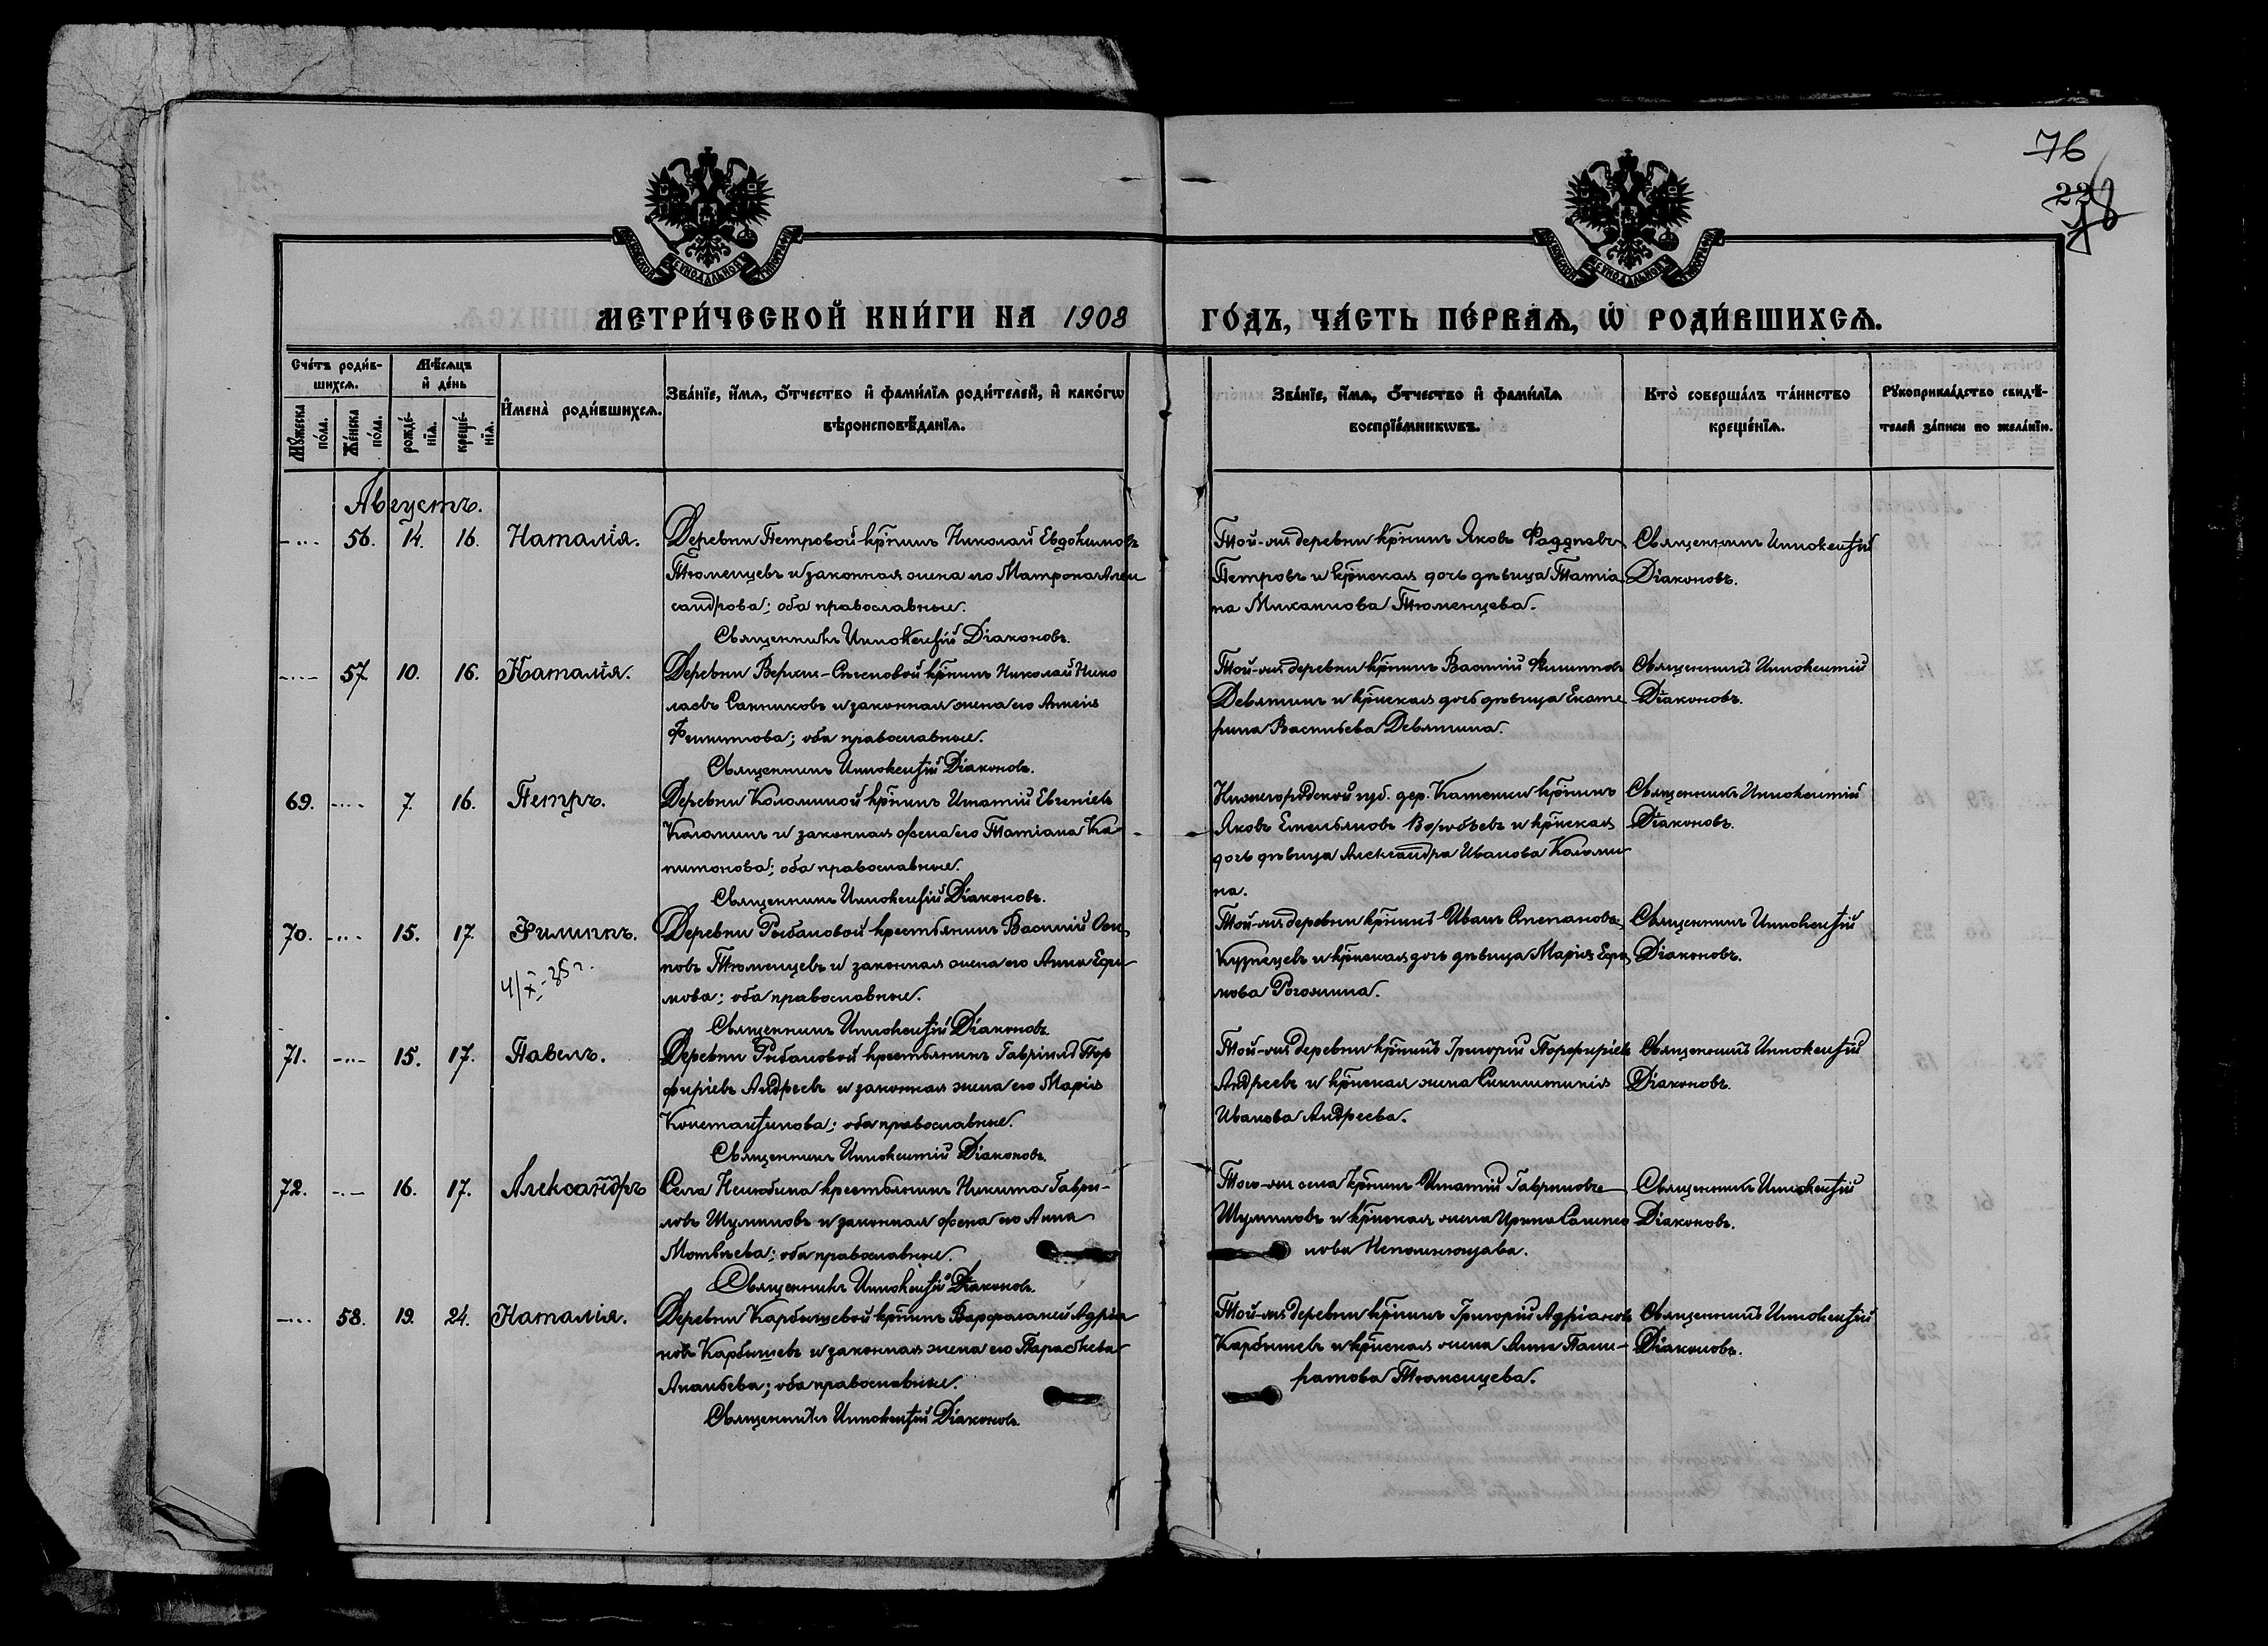 76
МЕТРИ́ЧЕСКОЙ КНИ́ГИ НА 1908 ГО́ДЪ, ЧА́СТЬ ПЕ́РВАѦ, Ѡ҆ РОДИ́ВШИХСѦ.
Сче́тъ роди́в-
шихсѧ.
Мѣ́сѧцъ
и҆ де́нь
Мꙋ́жеска
по́ла.
Же́нска
по́ла.
рожде́-
нїѧ.
креще́-
нїѧ.
И҆мена̀ роди́вшихсѧ.
Зва́нїе, и҆́мѧ, о҆́тчество и҆ фами́лїѧ роди́телей, и҆ како́гѡ
вѣроисповѣ́данїѧ.
Зва́нїе, и҆́мѧ, о҆́тчество и҆ фами́лїѧ
воспрїе́мникѡвъ.
Кто̀ соверша́лъ та́инство
креще́нїѧ.
Рꙋкоприкла́дство свидѣ́-
телей за́писи по жела́нїю.
Августъ.
56. 14. 16. Наталія.
Деревни Петровой кр̃нинъ Николай Евдокимовъ
Тюменцевъ и законная жена его Матрона Алек
сандрова; оба православные.
Священникъ Иннокентій Діаконовъ.
Той-же деревни кр̃нинъ Яковъ Фаддѣевъ
Петровъ и кр̃нская дочь дѣвица Татіа
на Михаилова Тюменцева.
Священникъ Иннокентій
Діаконовъ.
57 10. 16. Наталія.
Деревни Верхне-Сѣченовой кр̃нинъ Николай Нико
лаевъ Санниковъ и законная жена его Анисія
Филиппова; оба православные.
Священникъ Иннокентій Діаконовъ.
Той-же деревни кр̃нинъ Василій Филипповъ
Девятинъ и кр̃нская дочь дѣвица Екате
рина Васильева Девятина.
Священникъ Иннокентій
Діаконовъ.
69. 7. 16. Петръ.
Деревни Коломиной кр̃нинъ Игнатій Евгеніевъ
Коломинъ и законная жена его Татіана Ка-
питонова; оба православные.
Священникъ Иннокентій Діаконовъ.
Нижегородской губ. дер. Каменки кр̃нинъ
Яковъ Емельяновъ Воробьевъ и кр̃нская
дочь дѣвица Александра Иванова Коломи
на.
Священникъ Иннокентій
Діаконовъ.
70. 15. 17. Филиппъ.
4/X-35 г.
Деревни Рыбаловой крестьянинъ Василій Оси
повъ Тюменцевъ и законная жена его Анна Ефи
мова; оба православные.
Священникъ Иннокентій Діаконовъ.
Той-же деревни кр̃нинъ Иванъ Степановъ
Кузнецевъ и кр̃нская дочь дѣвица Марія Ефи
мова Рогожина.
Священникъ Иннокентій
Діаконовъ.
71. 15. 17. Павелъ.
Деревни Рыбаловой крестьянинъ Гавріилъ Пор
фиріевъ Андреевъ и законная жена его Марія
Константинова; оба православные.
Священникъ Иннокентій Діаконовъ.
Той-же деревни кр̃нинъ Григорій Порфиріевъ
Андреевъ и кр̃нская жена
Иванова Андреева.
Священникъ Иннокентій
Діаконовъ.
72. 16. 17. Александръ
Села Нелюбина крестьянинъ Никита Гаври-
ловъ Шумиловъ и законная жена его Анна
Матвѣева; оба православные.
Священникъ Иннокентій Діаконовъ.
Того-же села кр̃нинъ Игнатій Гавриловъ
Шумиловъ и кр̃нская жена Ирина
нова Непомнющава.
Священникъ Иннокентій
Діаконовъ.
58. 19. 24. Наталія.
Деревни Карбышевой кр̃нинъ Варфаламей Адріа
новъ Карбышевъ и законная жена его Параскева
Ананьева; оба православные.
Священникъ Иннокентій Діаконовъ.
Той-же деревни кр̃нинъ Григорій Адріановъ
Карбышевъ и кр̃нская жена Анна Панк-
ратова Тюменцева.
Священникъ Иннокентій
Діаконовъ.